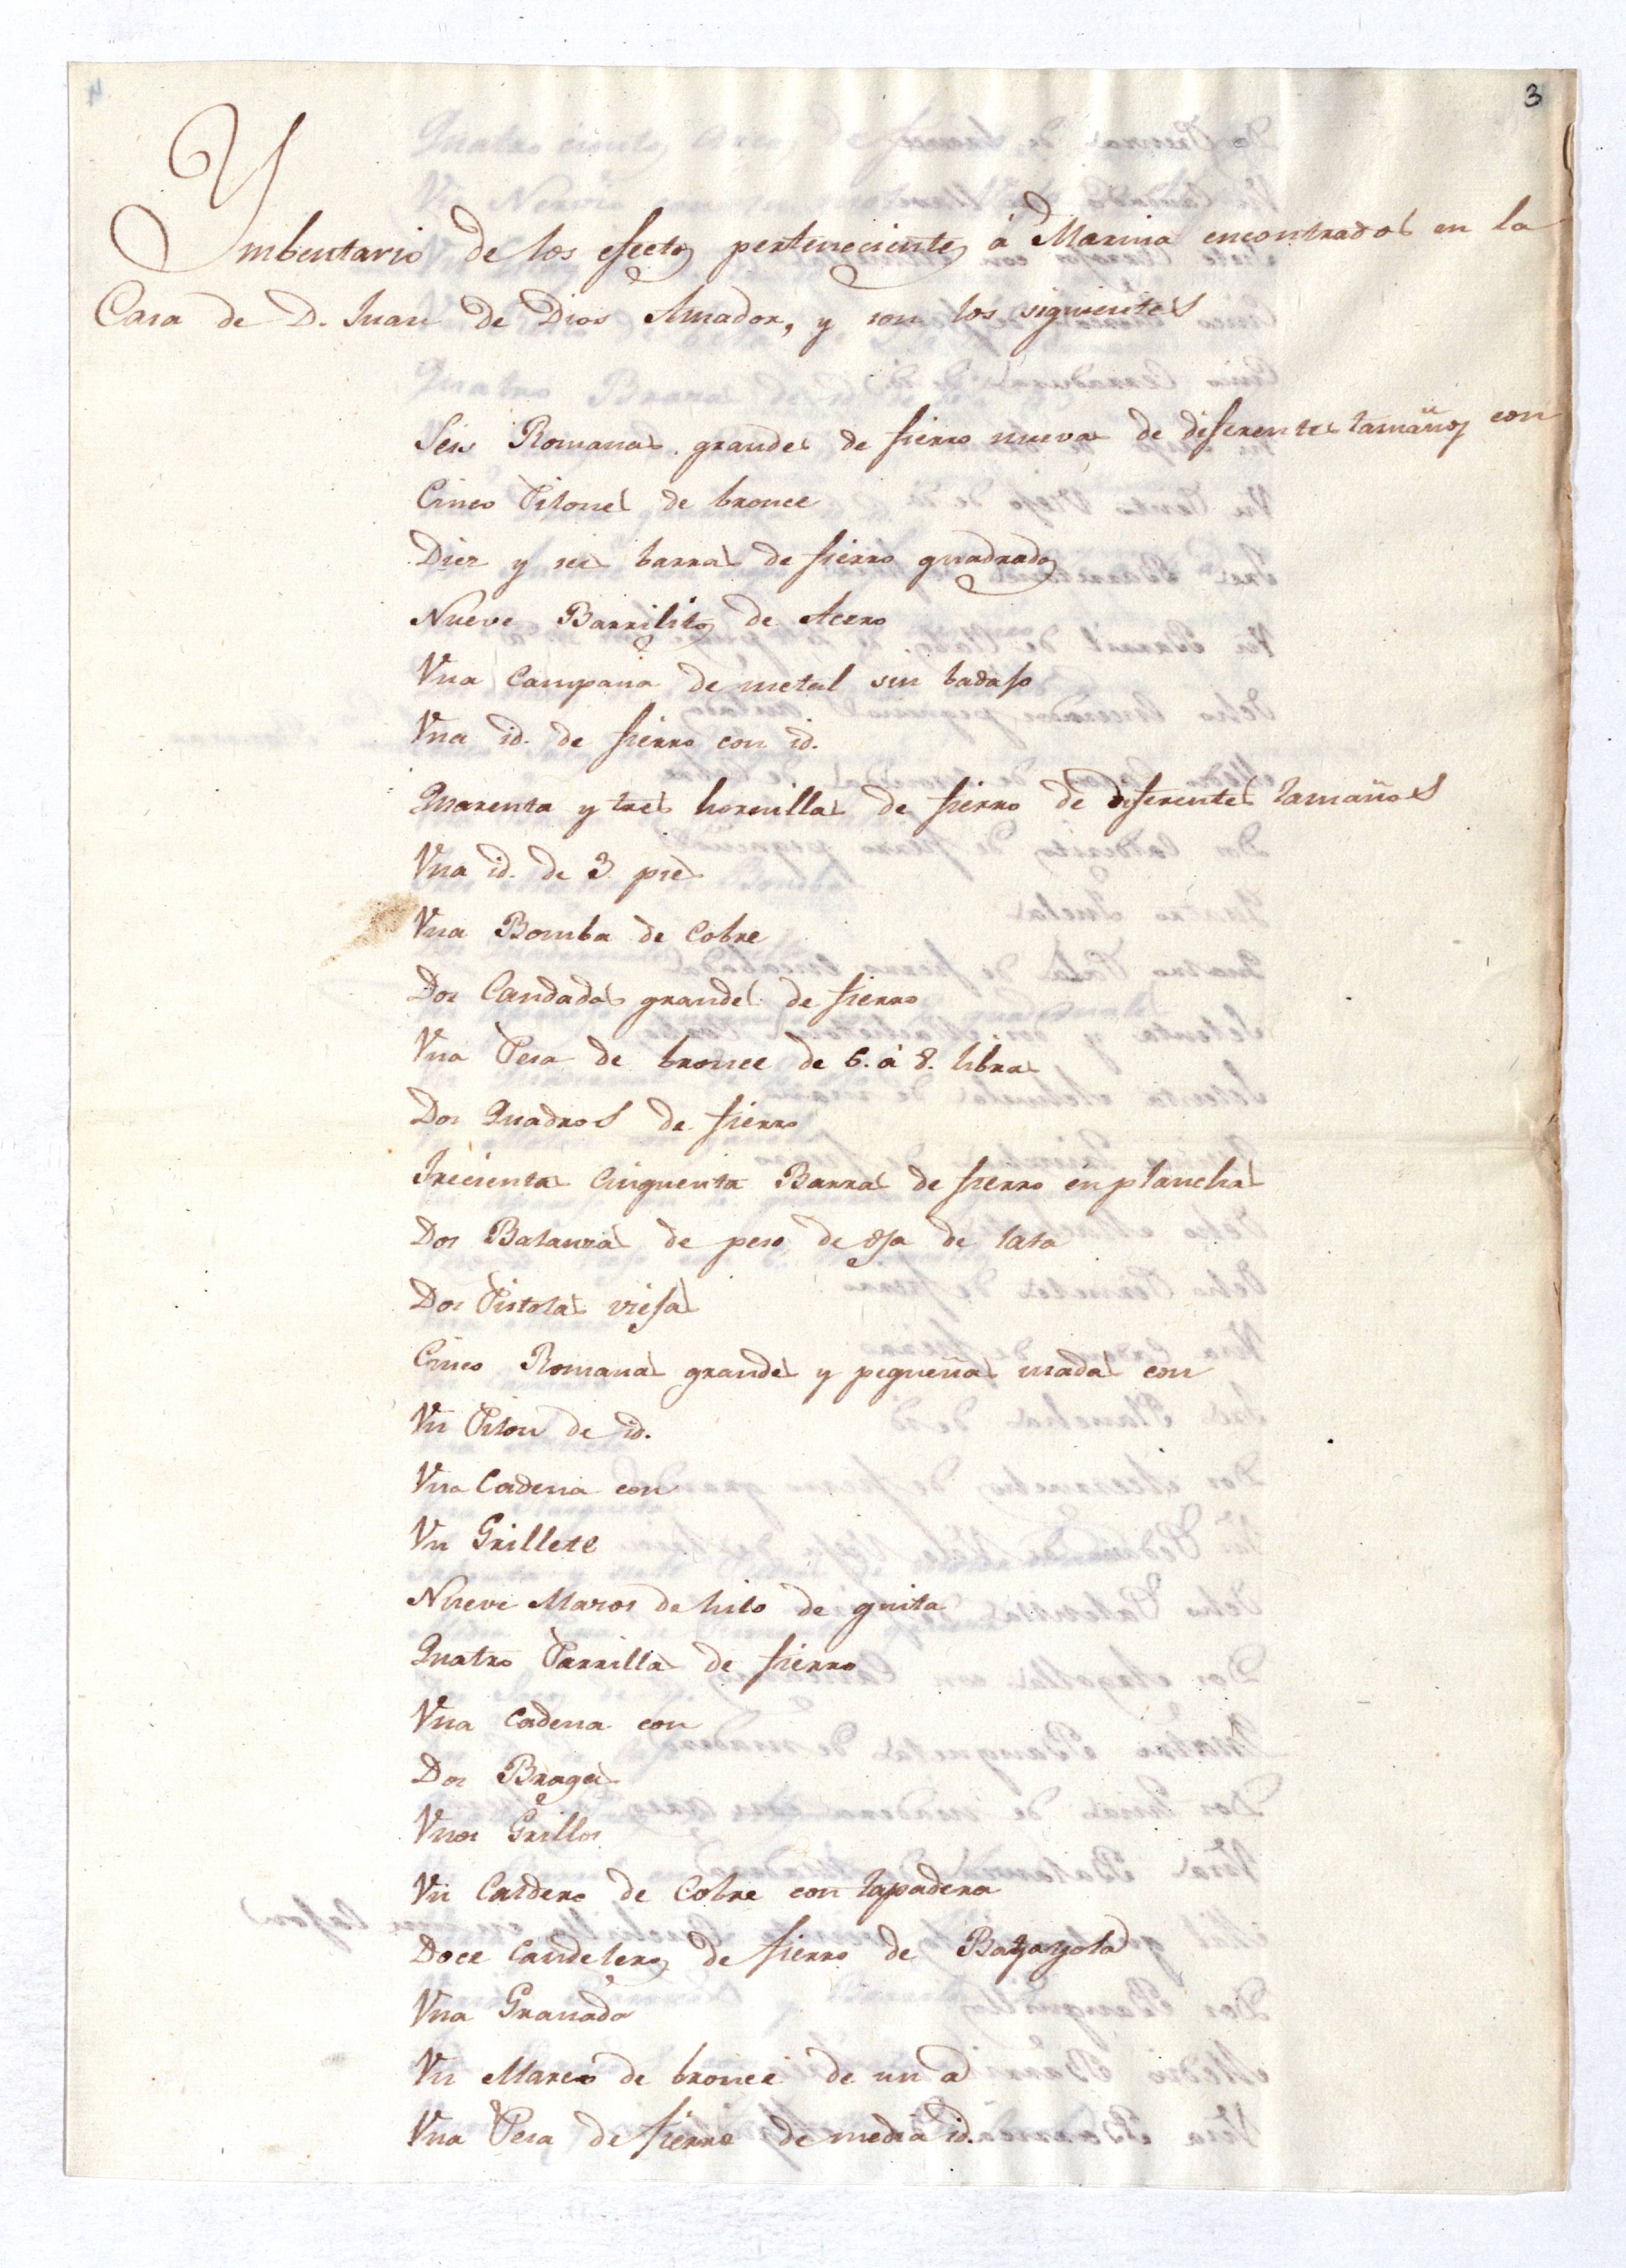 3
Ymbentario de los efectos perteneciente, á Marina encontrados en la
Casa de D. Juan de Dios Amador, y son los siguientes
Seis Romanas grandes de fierro nuevas de diferentes tamaños con
Cinco Pilones de bronce
Diez y seis barras de fierro quadrados
Nueve Barrilitos de Acero
Vna Campana de metal sin badajo
Vna id. de fierro con id.
Quarenta y tres hornillas de fierro de diferentes tamaños
Vna id. de 3 pies
Vna Bomba de Cobre
Dos Candados grandes de fierro
Vna Pesa de bronce de 6. á 8. libras
Dos Quadros de fierro
Trecientas Cinquenta Barras de fierro en planchas
Dos Balanzas de peso de oja de lata
Dos Pistolas viejas
Cinco Romanas grandes y pequeñas usadas con
Vn Pilon de id.
Vna Cadena con
Vn Grillete
Nueve Mazos de hilo de guita
Quatro Parrillas de fierro
Vna Cadena con
Dos Bragas
Vnos Grillos
Vn Caldero de Cobre con tapadera
Doce Candeleros de fierro de
Vna Granada
Vn Marco de bronce de un a
Vna Pesa de fierro de media id.